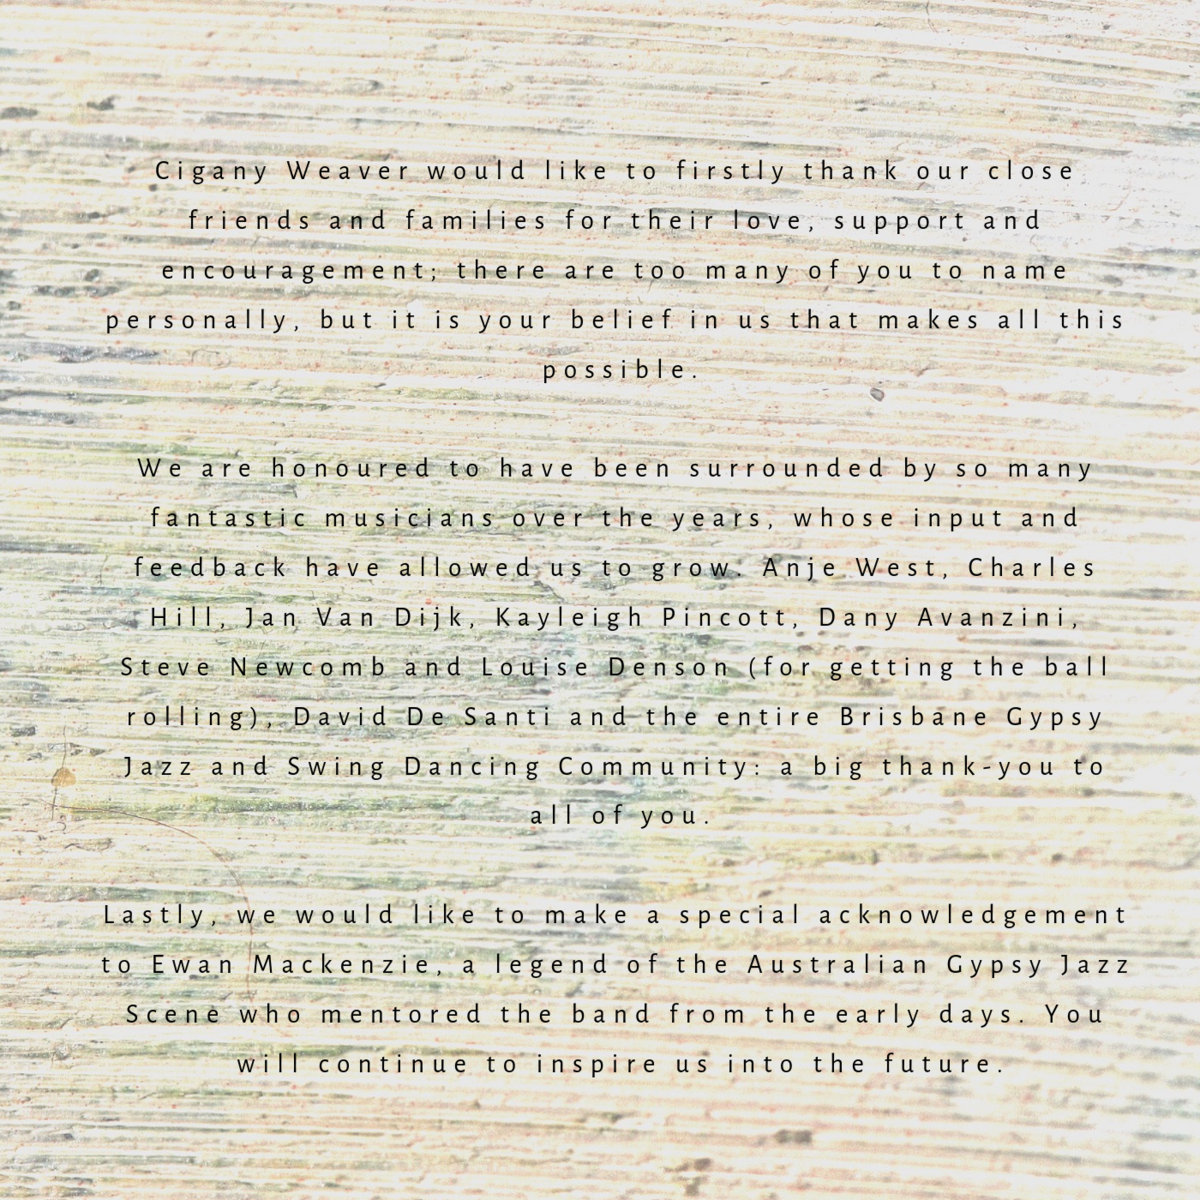 Cigany Weaver would like to firstly thank our close
friends and families for their love, support and
encouragement; there are too many of you to name
personally, but it is your belief in us that makes all this
possible.
We are honoured to have been surrounded by so many
fantastic musicians over the years, whose input and
feedback have allowed us to grow. Anje West, Charles
Hill, Jan Van Dijk, Kayleigh Pincott, Dany Avanzini,
Steve Newcomb and Louise Denson (for getting the ball
rolling), David De Santi and the entire Brisbane Gypsy
Jazz and Swing Dancing Community: a big thank-you to
all of you.
Lastly, we would like to make a special acknowledgement
to Ewan Mackenzie, a legend of the Australian Gypsy Jazz
Scene who mentored the band from the early days. You
will continue to inspire us into the future.